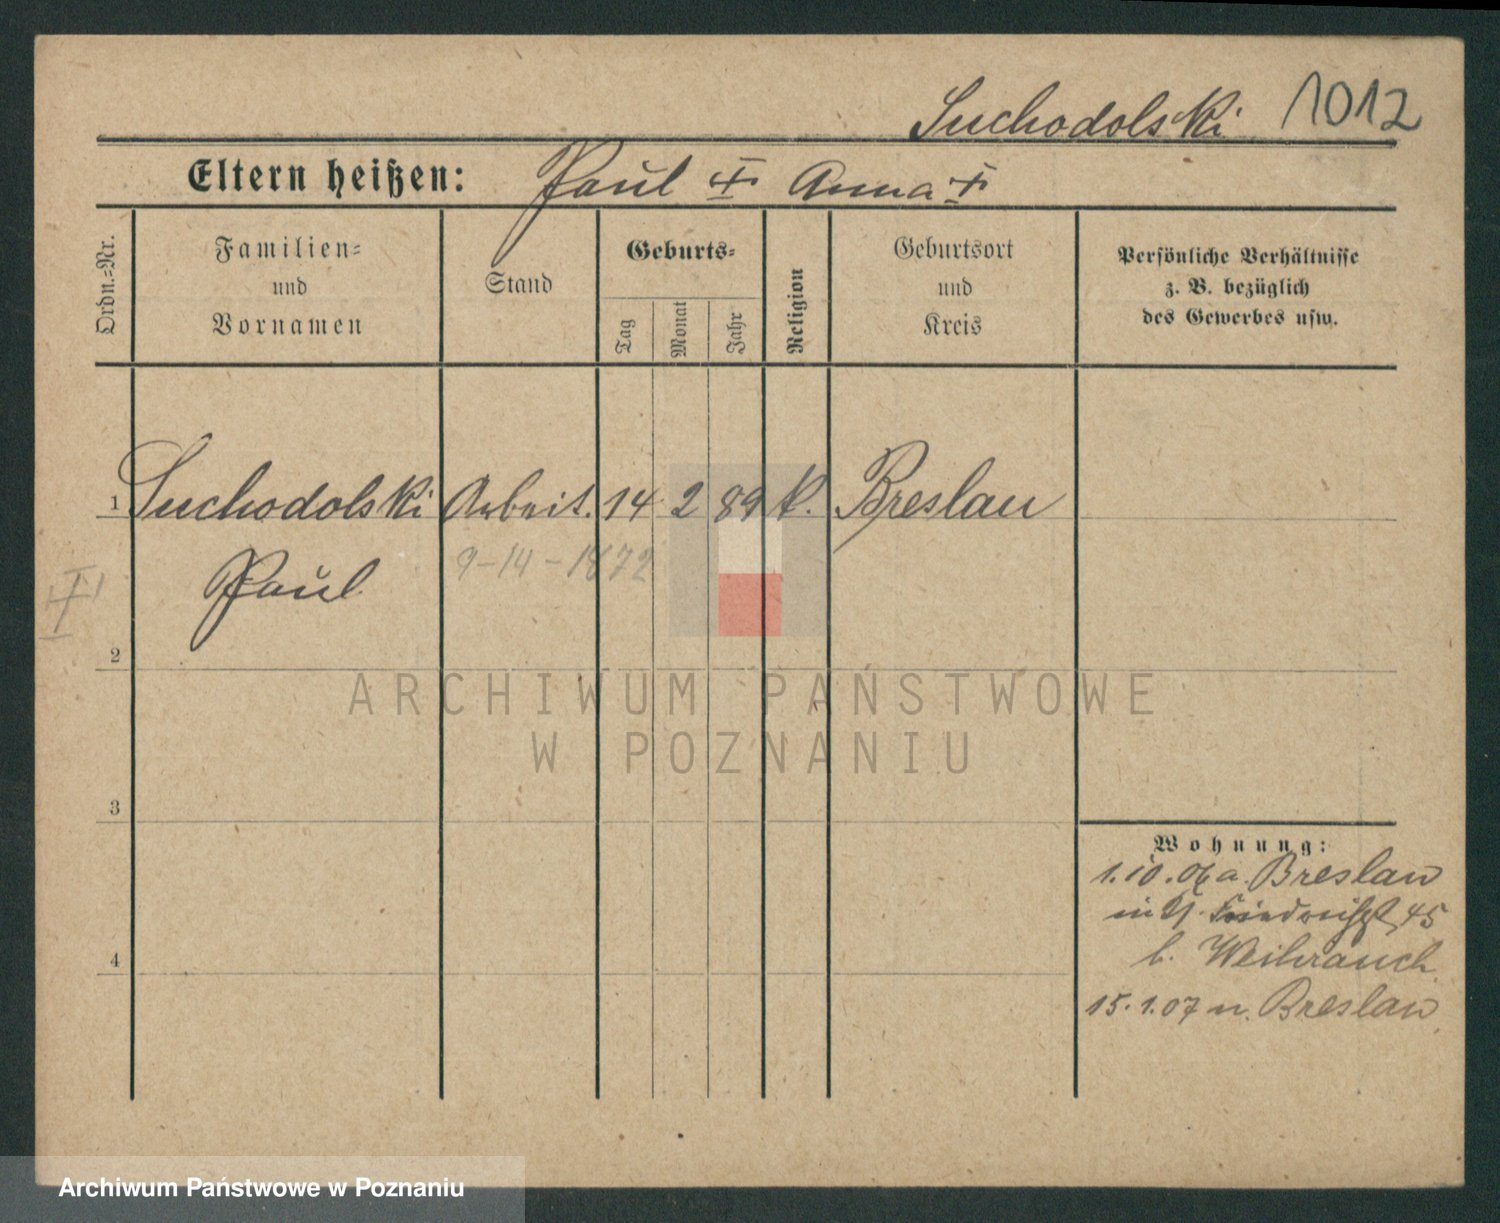 Suchodolski 1012
Eltern heißen: Paul Anna
Ordn.=Nr.
Familien=
und
Vornamen
Stand
Geburts=
Tag
Monat
Jahr
Religion
Geburtsort
und
Kreis
Persönliche Verhältnisse
z. B. bezüglich
des Gewerbes usw.
1 Suchodolski Arbeit. 14 2 89 k. Breslau
9-14-1872
Paul
2
3
4
Wohnung:
1.10.06 a. Breslau
45
b. Weihrauch
15.1.07 n. Breslau
ARCHIWUM PAŃSTWOWE
W POZNANIU
Archiwum Państwowe w Poznaniu